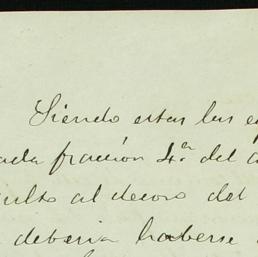 Siendo estas las
fracción 4ª del
al decoro del
debería haberse